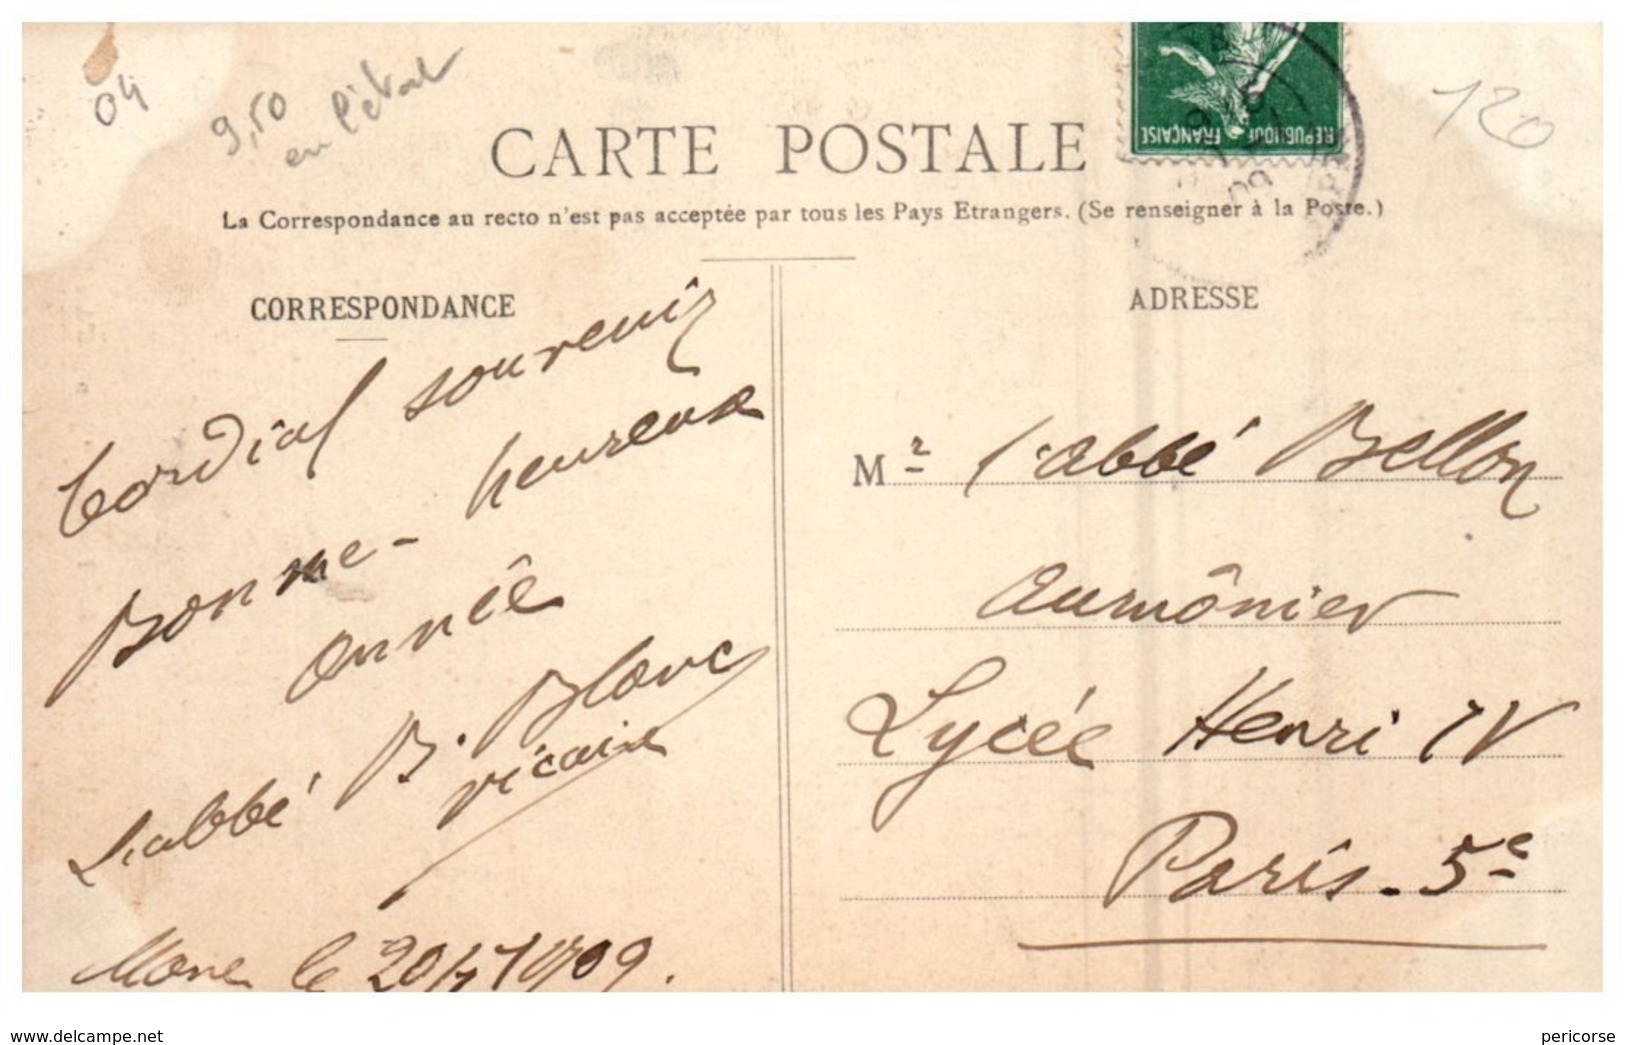 04
9,50
en l'état
120
CARTE POSTALE
REPUBLIQUE FRANÇAISE
09
La Correspondance au recto n'est pas acceptée par tous les Pays Etrangers. (Se renseigner à la Poste.)
CORRESPONDANCE
Cordial souvenir
Bonne - heureuse
année
L'abbé B. Blanc
vicaire
le 20/1 1909.
ADRESSE
Mr l'abbé Bellon
Aumônier
Lycée Henri IV
Paris - 5e
delcampe.net
pericorse